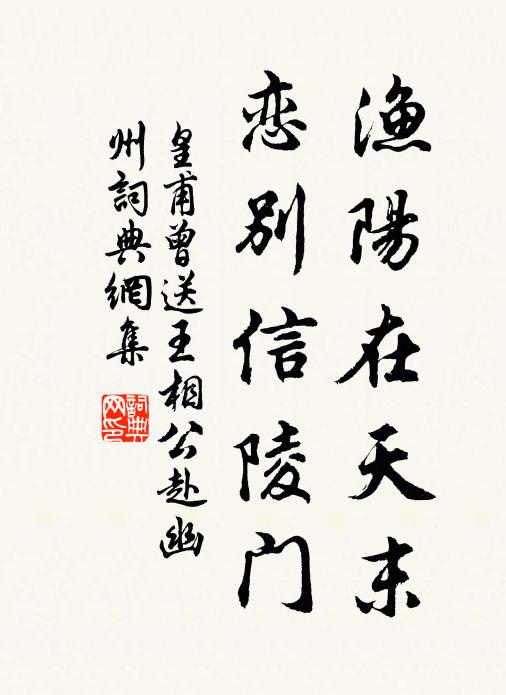 漁陽在天末
恋別信陵门
皇甫曾送王相公赴幽
州詞典網集
詞典网印